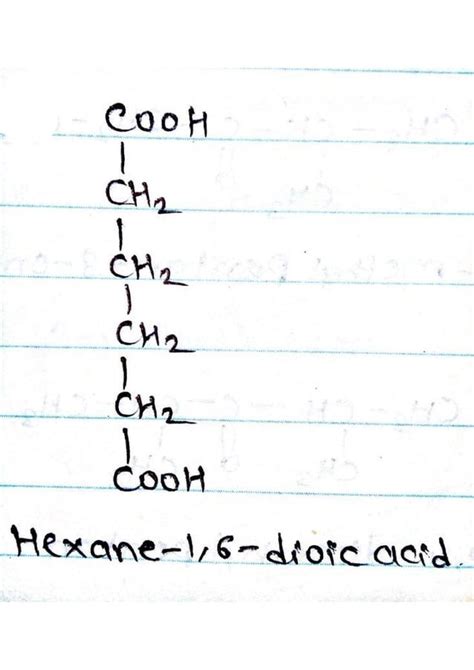 COOH
|
CH2
|
CH2
|
CH2
|
CH2
|
COOH
Hexane-1,6-dioic acid.